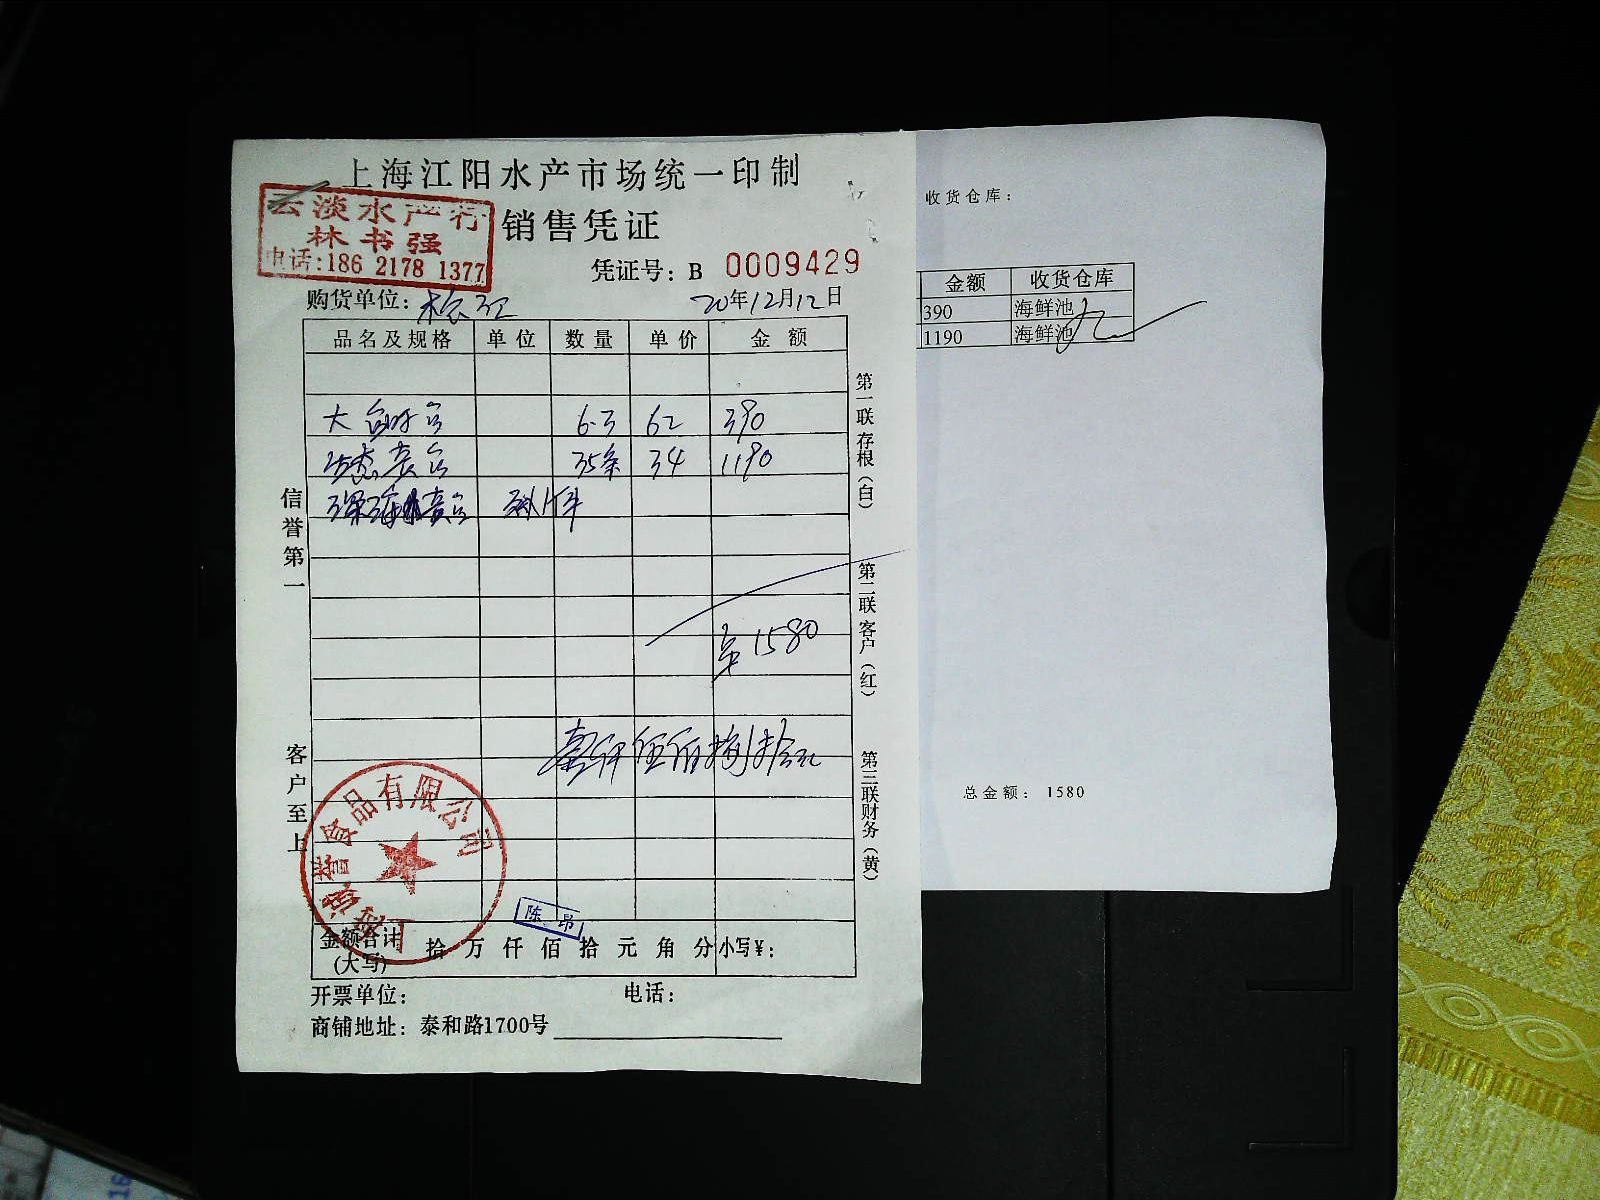 上海江阳水产市场统一印制
云淡水产行
林书强
电话:186 2178 1377
销售凭证
凭证号: B 0009429
购货单位:
20年12月12日
品名及规格 单位 数量 单价 金额
大 6.3 62 390
35条 34 1190
1580
壹仟伍佰捌拾元
信誉第一
客户至上
第一联存根(白)
第二联客户(红)
第三联财务(黄)
食品有限公司
陈昂
金额合计(大写) 拾 万 仟 佰 拾 元 角 分 小写¥:
开票单位: 电话:
商铺地址: 泰和路1700号
收货仓库:
金额 收货仓库
390 海鲜池
1190 海鲜池
总金额: 1580